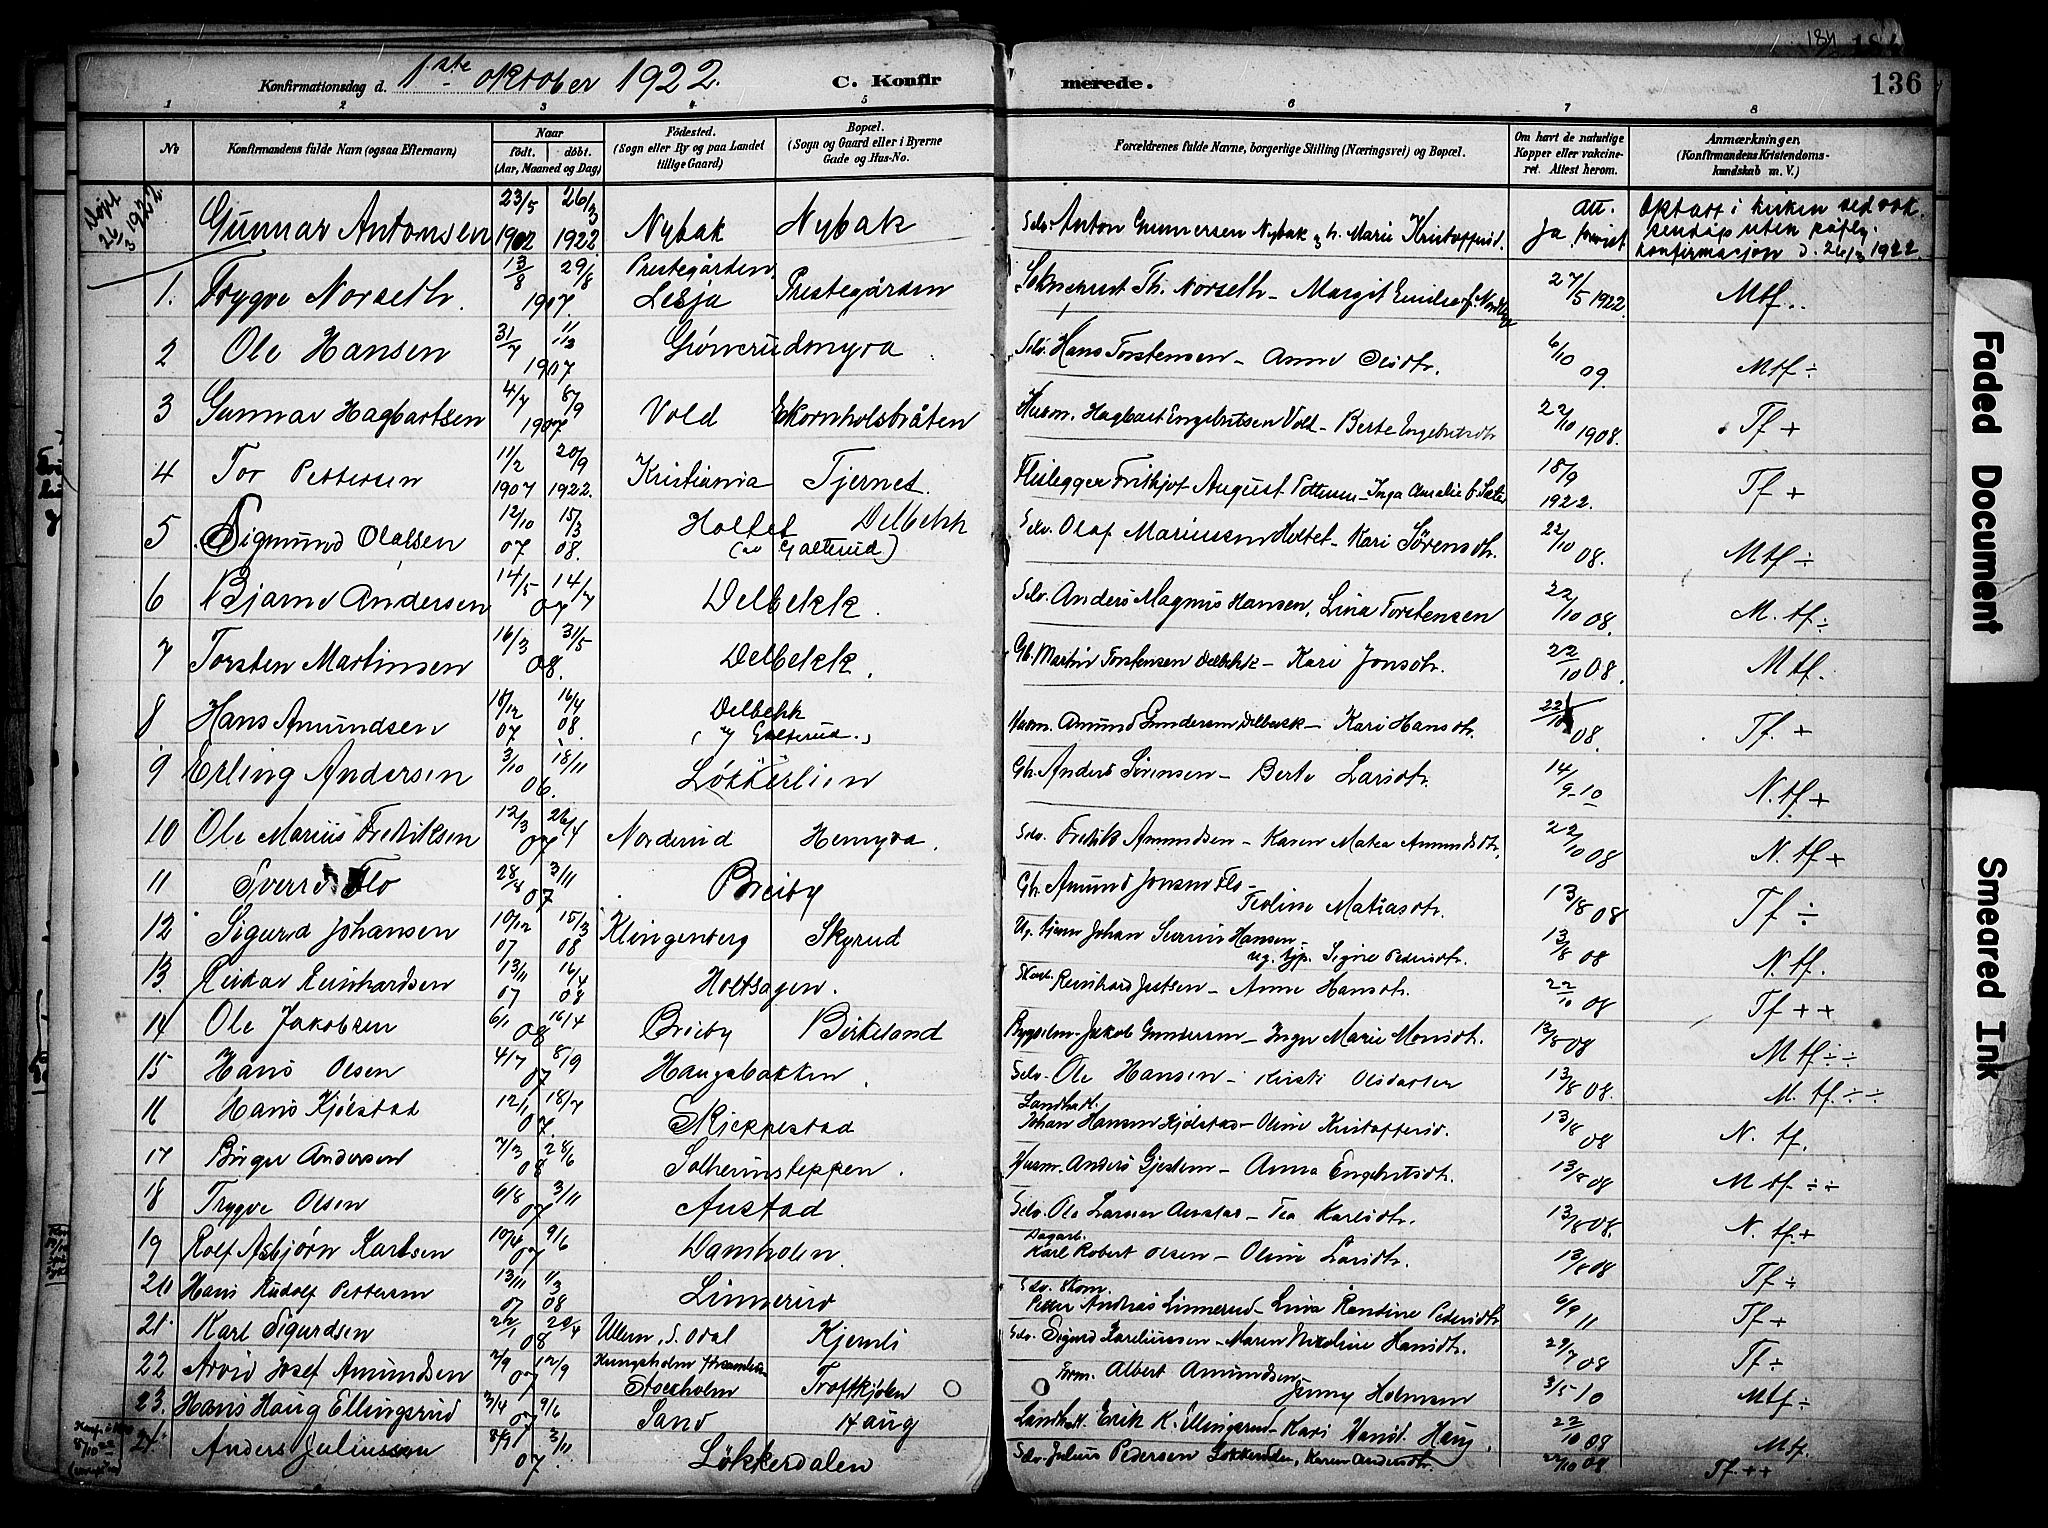 184
136
Konfirmationsdag d. 1ste oktober 1922. C. Konfirmerede.
1 2 3 4 5 6 7 8
No Konfirmandens fulde Navn (ogsaa Efternavn) Naar født. døbt. (Aar, Maaned og Dag) Fødested. (Sogn eller By og paa Landet tillige Gaard) Bopæl. (Sogn og Gaard eller i Byerne Gade og Hus-No.) Forældrenes fulde Navne, borgerlige Stilling (Næringsvei) og Bopæl. Om havt de naturlige Kopper eller vakcineret. Attest herom. Anmærkninger. (Konfirmandens Kristendomskundskab m. V.)
Døpt 26/3 1922. Gunnar Antonsen 23/5 1902 26/3 1922 Nybak Nybak Selv. Anton Gunnersen Nybak og h. Marie Kristoffersd. att. Ja Optatt i kirken uten konfirmasjon d. 26/3 1922.
1. Trygve Norseth. 13/8 29/8 1907. Prestegården Lesja Prestegården Sokneprest Th. Norseth - Margit 27/5 1922. Mtf.
2 Ole Hansen 31/7 1907 Grønerudmyra Selv. Hans Torstensen - Anne Olsdtr. 6/10 09. Mtf ÷
3 Gunnar Hagbartsen 4/7 8/9 1907 Vold Ekornholsbråten Husm. Hagbart Engebretsen Vold - Berte Engebretsdtr 22/10 1908. Tf +
4 Tor Pettersen 11/2 1907 20/9 1922. Kristiania Tjernet. Fritjof August Pettersen - Inga Amalie f. 18/9 1922. Tf +
5 Sigmund Olafsen 12/10 07 15/3 08. Holtet (av Galterud) Delbekk Selv. Olaf Mariussen Holtet - Kari Sørensdtr. 22/10 08. Mtf ÷
6 Bjarne Andersen 14/5 14/7 07 Delbekk. Selv. Anders Magnus Hansen, Lina Torstensen 22/10 08. M. tf ÷
7 Torsten Martinsen 16/3 31/5 08. Delbekk. Gb. Martin Torstensen Delbekk - Kari Jonsdtr. 22/10 08. Mtf.
8 Hans Amundsen 18/12 07 16/4 08. Delbekk (av Galterud.) Husm. Amund Gundersen Delbekk - Kari Hansdtr. 22/10 08. Tf +
9 Erling Andersen 3/10 18/11 06. Løkkerlien Gb. Anders Sørensen - Berte Larsdtr. 14/9-10 N. tf +
10 Ole Marius Fredriksen 12/3 26/4 07 Norderud Hemyra. Selv. Fredrik Amundsen - Karen Matea Amundsdtr. 22/10 08 N. tf +
11 Sverre Flo 28/8 3/11 07 Breiby Gb. Amund Jonsen Flo - Teoline Matiasdtr. 13/8 08 Tf ÷
12 Sigurd Johansen 10/12 07 15/3 08 Klingenberg Skyrud Ug. tjener Johan Severin Hansen - ug. tjp. Signe Pedersdtr. 13/8 08 N. tf.
13. Reidar Reinhardsen 13/11 07 16/4 08 Holtsagen. Reinhard Justsen - Anne Hansdtr. 22/10 08 Tf ++
14 Ole Jakobsen 6/1 16/4 08 Breiby Birkeland Jakob Gundersen - Inger Marie Monsdtr. 13/8 08 Mtf ÷÷
15 Hans Olsen 4/7 8/9 07 Haugsbakken. Selv. Ole Hansen - Kirsti Olsdatter 13/8 08. M. tf. ÷÷
16 Hans Kjølstad 12/1 18/7 07. Skjeppestad Landhdl. Johan Hansen Kjølstad - Oline Kristoffersd. 13/8 08 N. tf.
17 Birger Andersen 7/3 28/6 08 Solheimsteppen. Husm. Anders Gjestem - Anna Engebretsdtr. 13/8 08 M tf ÷÷
18 Trygve Olsen 6/8 3/11 07 Austad Selv. Ole Larsen Austad - Tea Karlsdtr. 13/8 08. N. tf +
19 Rolf Asbjørn Karlsen 10/4 9/6 07 Damholen. Dagarb. Karl Robert Olsen - Oline Larsdtr. 13/8 08 Tf ÷
20 Hans Rudolf Pettersen 13/11 07 1/3 08 Linnerud Selv. Skom. Peder Andreas Linnerud - Lina Randine Pedersdtr 6/9 11 Tf +
21. Karl Sigurdsen 22/1 20/4 08 Ullern, S. Odal Kjernli Selv. Sigurd Kareliussen - Maren Nikoline Hansdtr. 29/7 08 Tf ÷
22 Arvid Josef Amundsen 2/9 12/9 07 Kungsholm Stockholm Troftkjølen Albert Amundsen - Jenny Holmsen 3/5 10 Mtf ÷
23. Hans Haug Ellingsrud 3/4 9/6 07 Sand Haug Landhdl. Erik K. Ellingsrud - Kari Hansd. Haug. 22/10 08 Mtf.
24. Anders Juliussen 8/9 3/11 07. Løkkerdalen Selv. Julius Pedersen Løkkerdalen, Karen Andersdtr. 22/10 08 Tf. ++
Faded Document
Smeared Ink